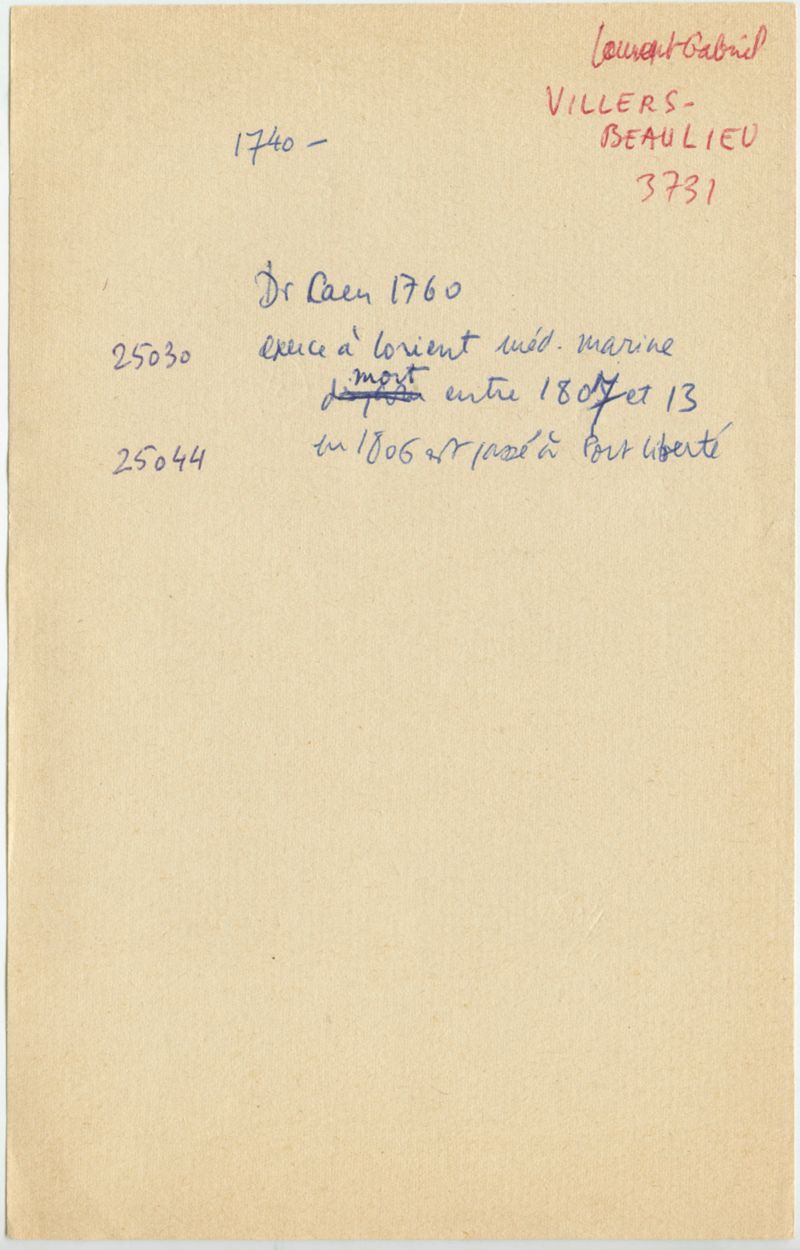 Laurent Gabriel
VILLERS-
BEAULIEU
3731
1740 -
Dr Caen 1760
25030 exerce à Lorient méd. marine
mort
entre 1807 et 13
25044 en 1806 est passé à Port liberté